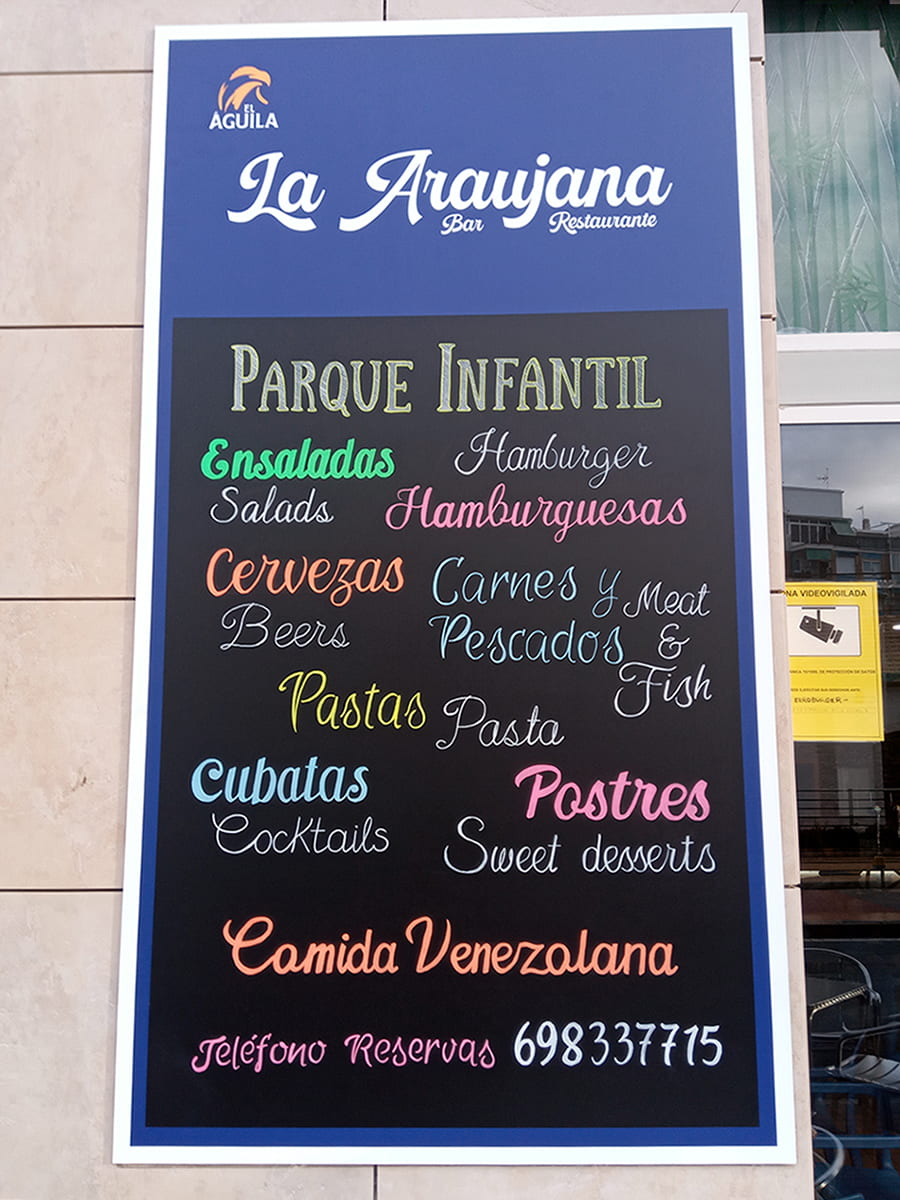 EL
AGUILA
La Araujana
Bar Restaurante
PARQUE INFANTIL
Ensaladas
Salads
Hamburger
Hamburguesas
Cervezas
Beers
Carnes y
Pescados
Meat
&
Fish
Pastas
Pasta
Cubatas
Cocktails
Postres
Sweet desserts
Comida Venezolana
Teléfono Reservas 698337715
NA VIDEOVIGILADA